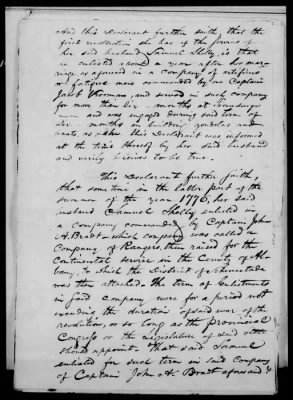 And this Declarant further saith, that the
first recollection she has of the service of
her said husband Samuel Shelly, is that
he enlisted about a year after her mar-
riage as aforesaid in a company of artificers
or fatigue men commanded by one Captain
Jacob Thomas and served in such company
for more than six months at Ticonderoga
and was engaged during said term of
six months in building gondolas
boats, as this Declarant was informed
at the time thereof by her said husband
and verily believes to be true.
This Declarant further saith,
that sometime in the latter part of the
summer of the year 1776, her said
husband Samuel Shelly enlisted in
a company commanded by Captain John
A. Bradt which company was called a
Company of Rangers, then raised for the
Continental service in the County of Al-
bany, to which the District of Schenectada
was then attached. The term of Enlistments
in said company were for a period not
exceeding the duration of said war of the
revolution, or so long as the provincial
Congress or the Legislature of said state
should appoint. That said Samuel
enlisted for such term in said Company
of Captain John A. Bradt aforesaid &